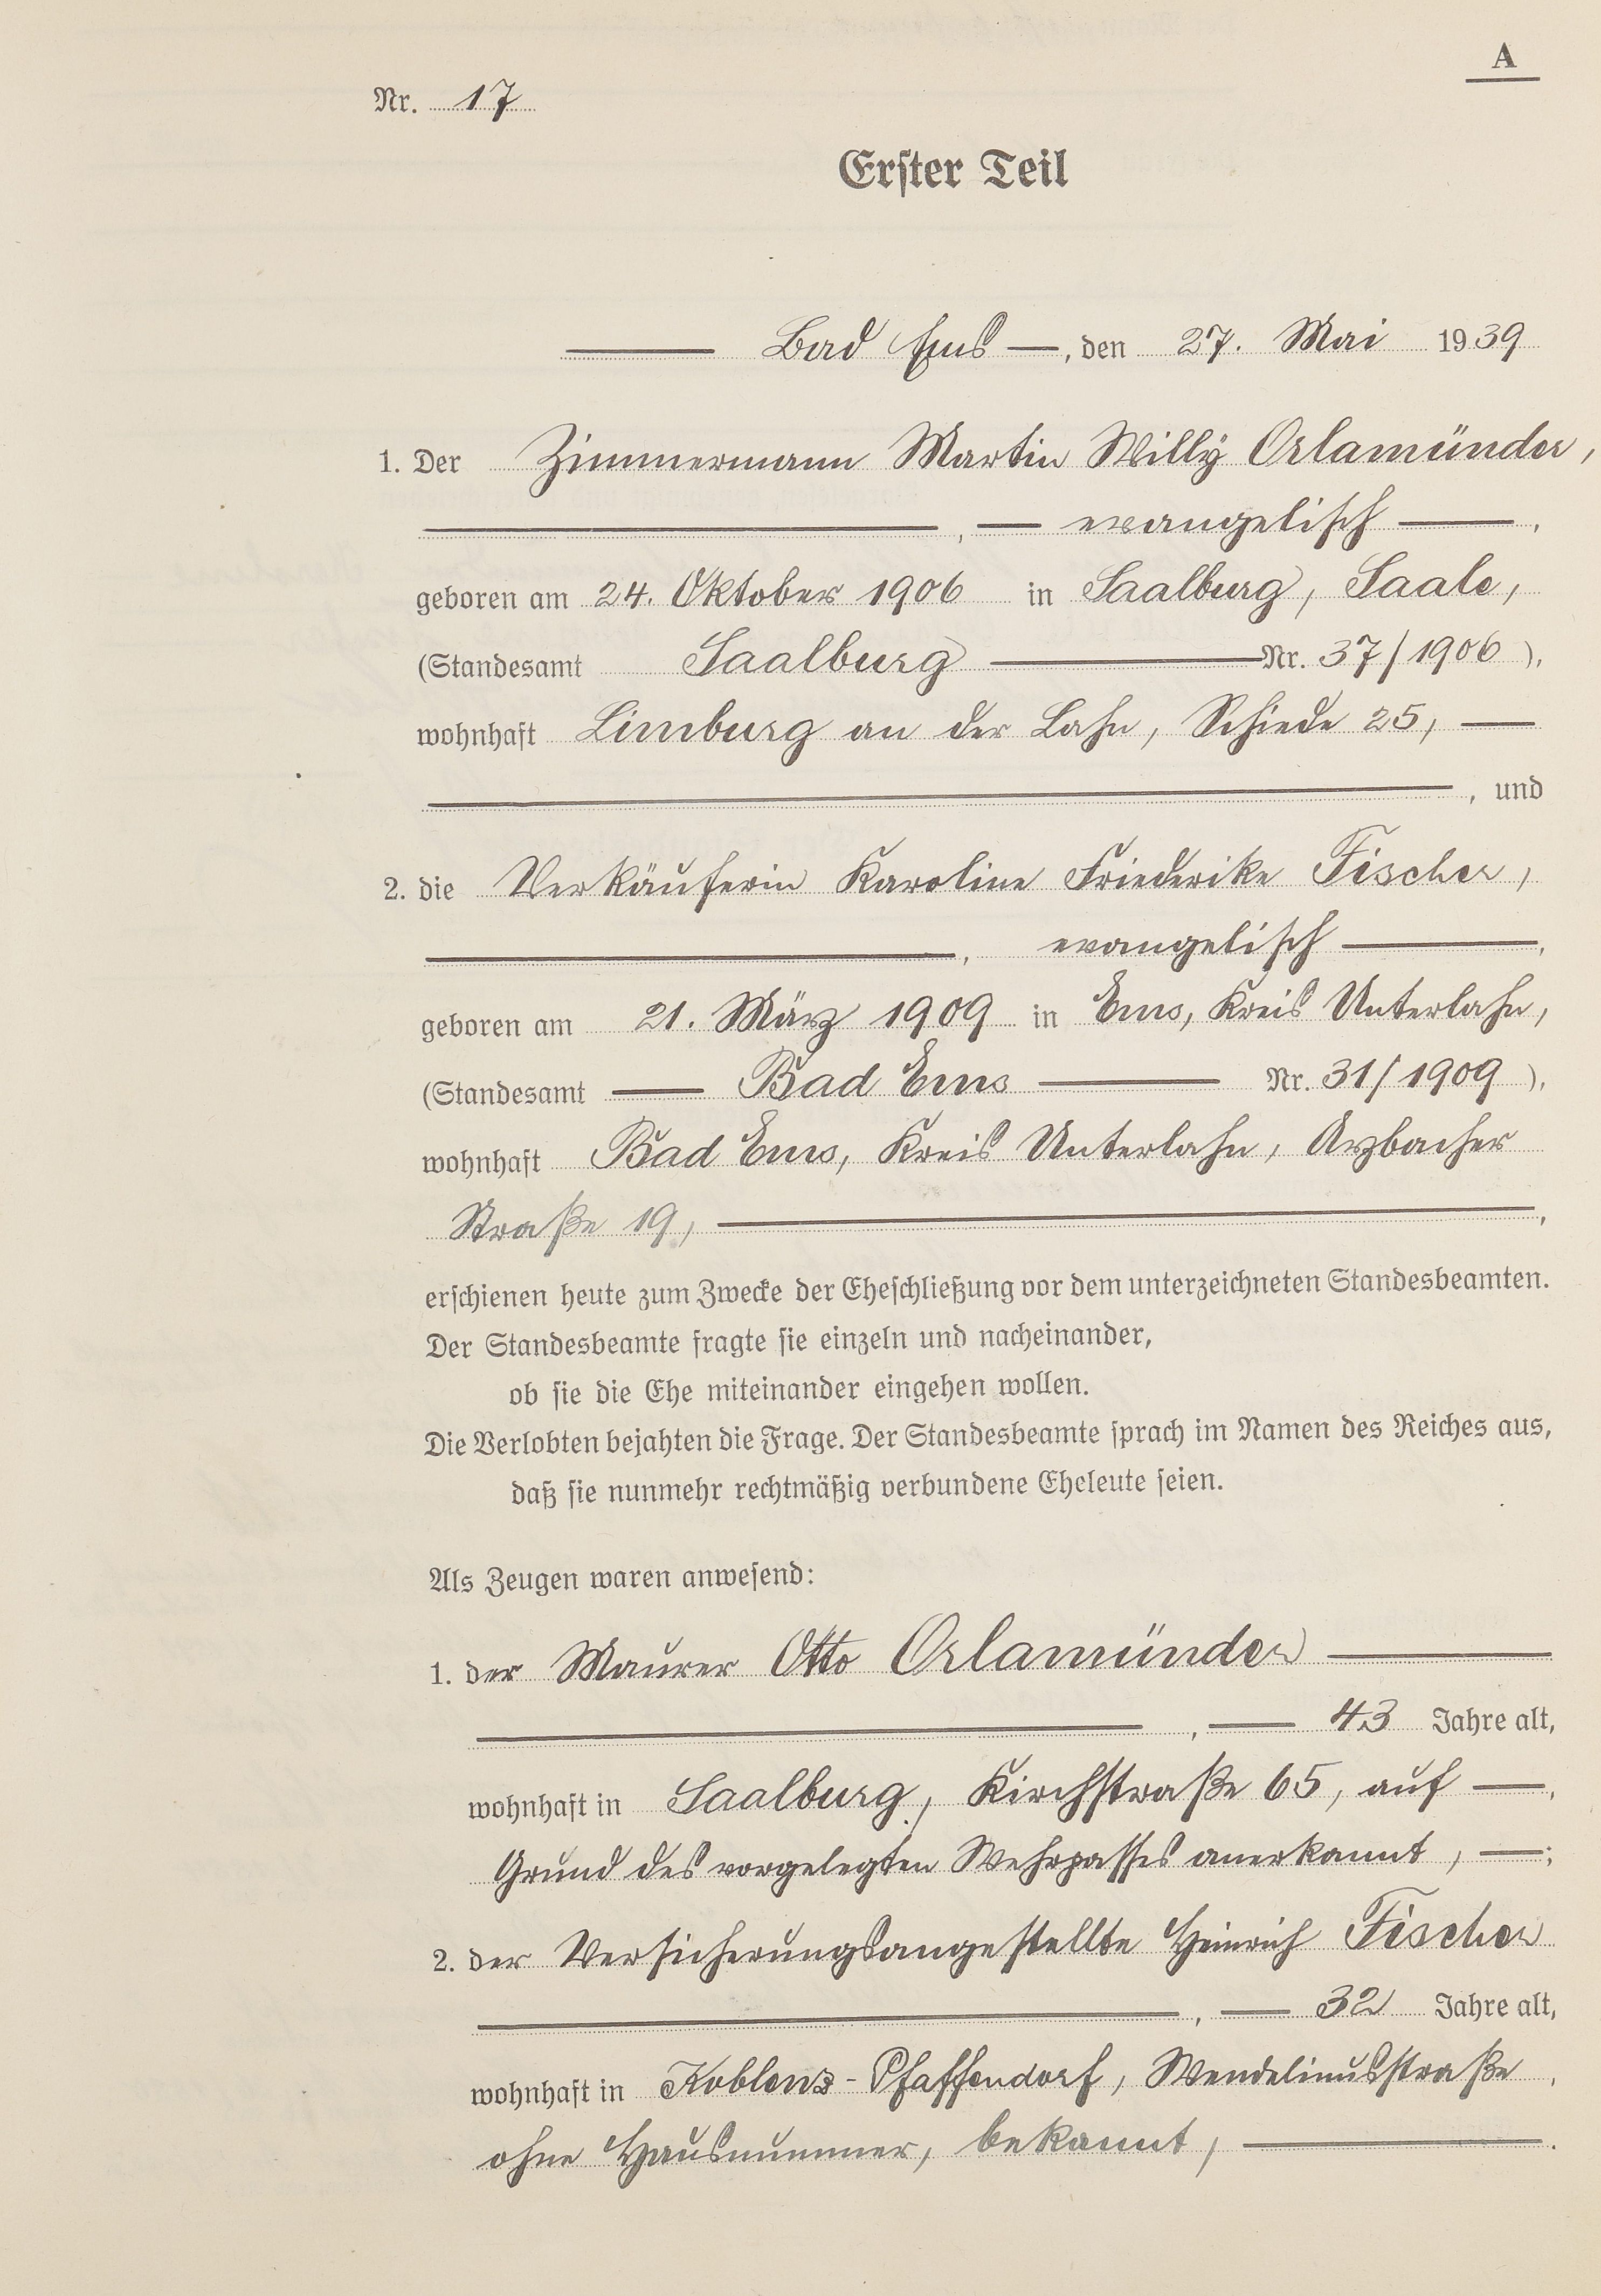 A
Nr. 17
Erster Teil
Bad Ems, den 27. Mai 1939
1. Der Zimmermann Martin Willy Orlamünder,
, evangelisch,
geboren am 24. Oktober 1906 in Saalburg, Saale,
(Standesamt Saalburg Nr. 37/1906),
wohnhaft Limburg an der Lahn, Schiede 25,
, und
2. die Verkäuferin Karoline Friederike Fischer,
, evangelisch,
geboren am 21. März 1909 in Ems, Kreis Unterlahn,
(Standesamt Bad Ems Nr. 31/1909),
wohnhaft Bad Ems, Kreis Unterlahn, Arzbacher
Straße 19,,
erschienen heute zum Zwecke der Eheschließung vor dem unterzeichneten Standesbeamten.
Der Standesbeamte fragte sie einzeln und nacheinander,
ob sie die Ehe miteinander eingehen wollen.
Die Verlobten bejahten die Frage. Der Standesbeamte sprach im Namen des Reiches aus,
daß sie nunmehr rechtmäßig verbundene Eheleute seien.
Als Zeugen waren anwesend:
1. der Maurer Otto Orlamünder
, 43 Jahre alt,
wohnhaft in Saalburg, Kirchstraße 65, auf,
Grund des vorgelegten Wehrpasses anerkannt,;
2. der Versicherungsangestellte Heinrich Fischer
, 32 Jahre alt,
wohnhaft in Koblenz-Pfaffendorf, Wendelinusstraße,
ohne Hausnummer, bekannt,.